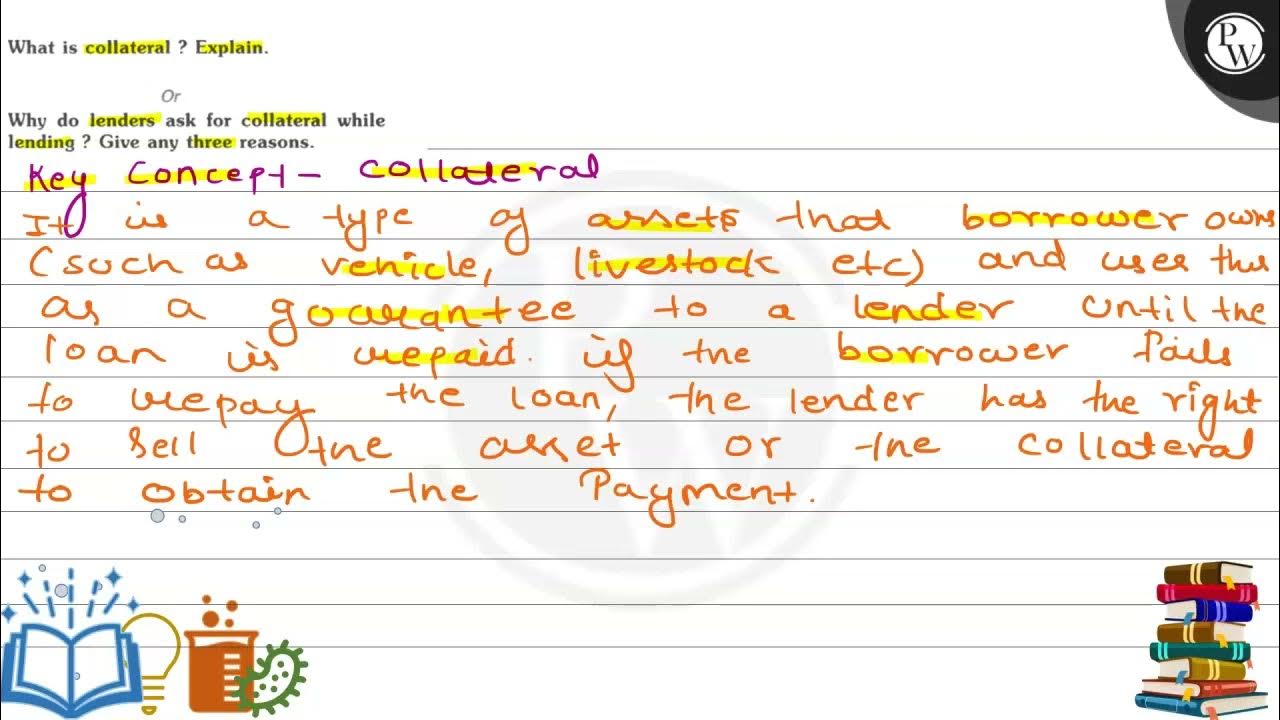 What is collateral ? Explain.
Or
Why do lenders ask for collateral while
lending ? Give any three reasons.
PW
Key Concept - Collateral
It is a type of assets that borrower owns
(such as vehicle, livestock etc) and uses this
as a guarantee to a lender until the
loan is repaid. if the borrower fails
to repay the loan, the lender has the right
to sell the asset or the collateral
to obtain the Payment.